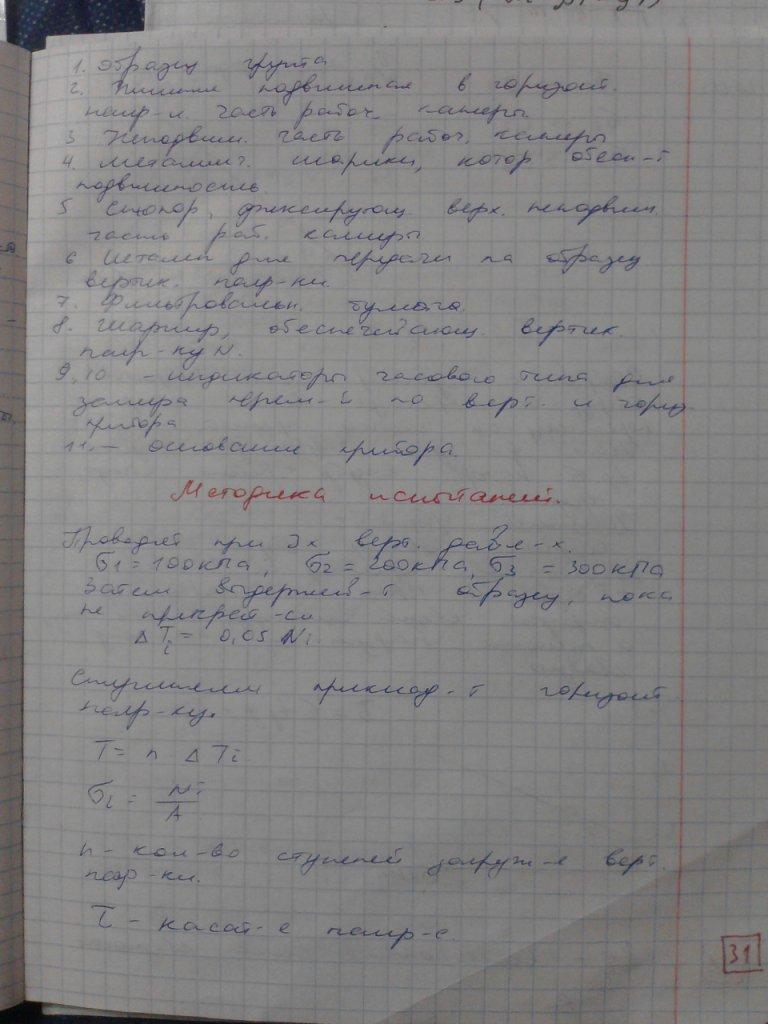 1. Образец грунта
2. Нижняя подвижная в горизонт.
напр-и. часть рабоч. камеры.
3 Неподвижн. часть рабоч. камеры
4. Металлич. шарики, котор обесп-т
подвижность.
5 Стопор, фиксирующ. верх. неподвиж.
часть раб. камеры
6 Штамп для передачи на образец
вертик. нагр-ки.
7. Фильтровальн. бумага.
8. Шарнир, обеспечивающ. вертик.
нагр-ку N.
9,10 - индикаторы часового типа для
замера перем-й по верт. и гориз.
прибора
11.- основание прибора.
Методика испытаний.
Проводят при 3х верт. давл-х.
σ1 = 100кПа, σ2 = 200кПа, σ3 = 300кПа
Затем выдержив-т образец, пока
не прекрат-ся
ΔTi = 0,05 Ni
Ступенями приклад-т горизонт
нагр-ку.
T = n ΔTi
σi = Ni
A
n - кол-во ступеней загруж-е верт.
нагр-ки.
τ - касат-е напр-е.
31